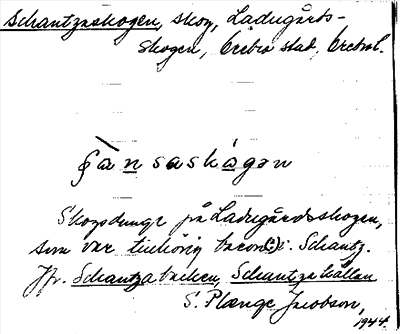 Schantzaskogen, skog, Ladugårds-
skogen, Örebro stad, Örebro l.
§ànsaskágən
Skogsdunge på Ladugårdsskogen,
som var tillhörig baron Schantz.
Jfr. Schantzabacken, Schantzakällan
S. Plænge Jacobson,
1944.